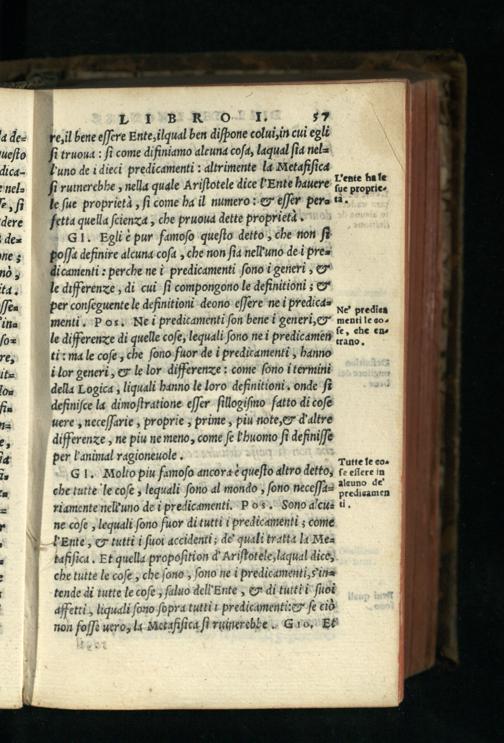 LIBRO I. 57
re, il bene essere Ente, ilqual ben dispone colui, in cui egli
si truoua: si come difiniamo alcuna cosa, laqual sia nel-
l'uno de i dieci predicamenti: altrimente la Metafisica
si ruinerebbe, nella quale Aristotele dice l'Ente hauere
le sue proprietà, si come ha il numero: & esser per=
fetta quella scienza, che pruoua dette proprietà.
GI. Egli è pur famoso questo detto, che non si
possa definire alcuna cosa, che non sia nell'uno de i pre=
dicamenti: perche ne i predicamenti sono i generi, &
le differenze, di cui si compongono le definitioni; &
per conseguente le definitioni deono essere ne i predica=
menti. POS. Ne i predicamenti son bene i generi, &
le differenze di quelle cose, lequali sono ne i predicamen
ti: ma le cose, che sono fuor de i predicamenti, hanno
i lor generi, & le lor differenze: come sono i termini
della Logica, liquali hanno le loro definitioni. onde si
definisce la dimostratione esser sillogismo fatto di cose
uere, necessarie, proprie, prime, piu note, & d'altre
differenze, ne piu ne meno, come se l'huomo si definisse
per l'animal ragioneuole.
GI. Molto piu famoso ancora è questo altro detto,
che tutte le cose, lequali sono al mondo, sono necessa=
riamente nell'uno de i predicamenti. POS. Sono alcu=
ne cose, lequali sono fuor di tutti i predicamenti; come
l'Ente, & tutti i suoi accidenti; de' quali tratta la Me=
tafisica. Et quella proposition d'Aristotele, laqual dice,
che tutte le cose, che sono, sono ne i predicamenti, s'in=
tende di tutte le cose, saluo dell'Ente, & di tutti i suoi
affetti, liquali sono sopra tutti i predicamenti: & se ciò
non fosse uero, la Metafisica si ruinerebbe. GIO. Et
L'ente ha le
sue proprie-
tà.
Ne' predica
menti le co-
se, che en-
trano.
Tutte le co-
se essere in
alcuno de'
predicamen
ti.